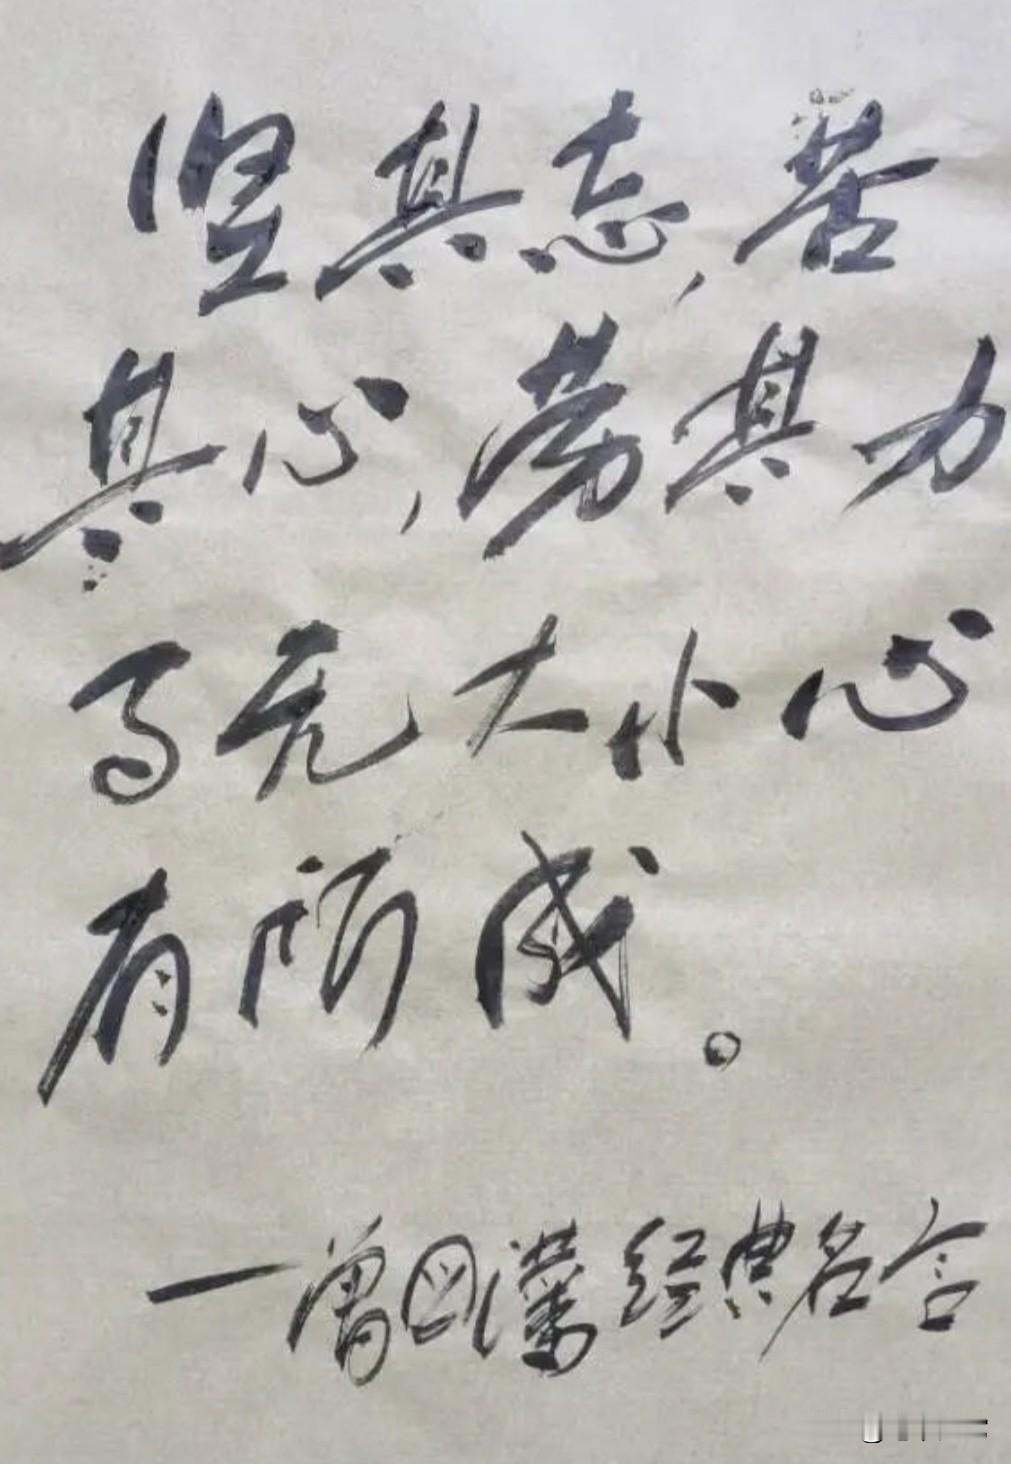 坚其志,苦
其心,劳其力
事无大小必
有所成。
—曾国藩经典名言